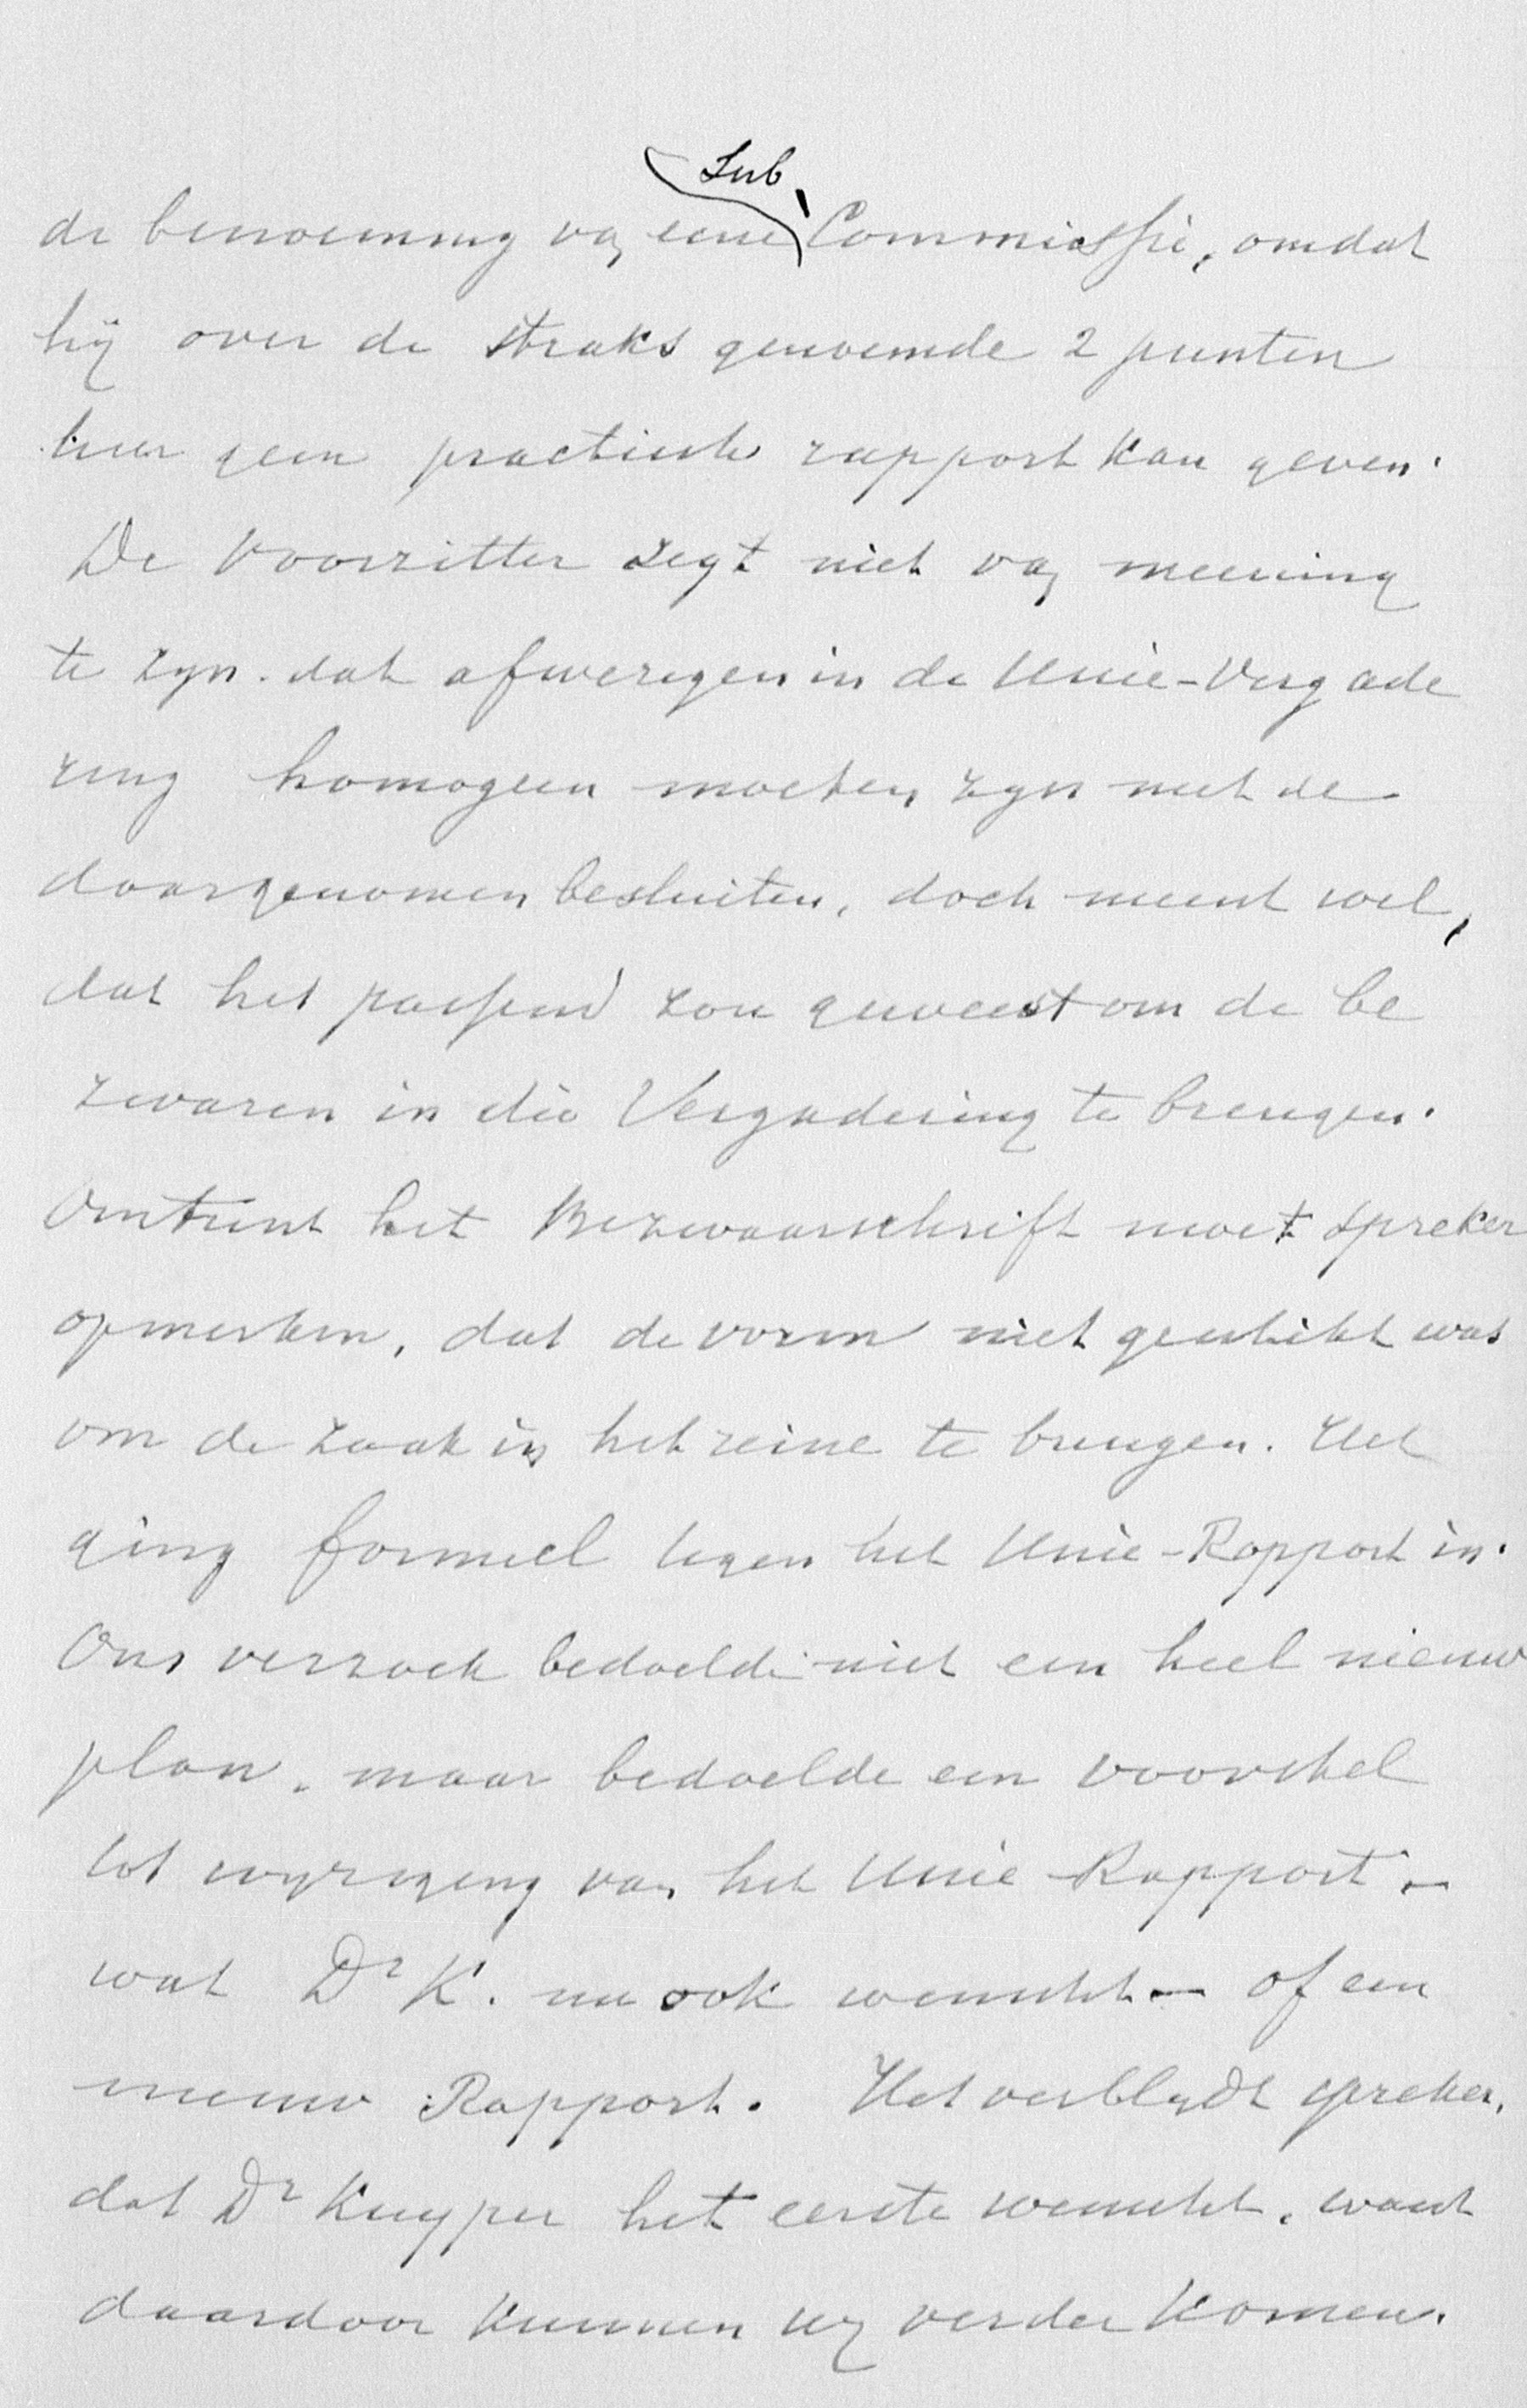 Sub
de benoeming van eene Commissie, omdat
hij over de straks genoemde 2 punten
hier geen practisch rapport kan geven.
De Voorzitter zegt niet van meening
te zyn. dat afwezigen in de Unie-Vergade
ring homogeen moeten zyn met de
daargenomen besluiten, doch meent wel,
dat het passend zou geweest om de be
zwaren in die Vergadering te brengen.
Omtrent het Bezwaarschrift moet spreker
opmerken, dat de vorm niet geschikt was
om de zaak in het reine te brengen. Het
ging formeel tegen het Unie-Rapport in.
Ons verzoek bedoelde niet een heel nieuw
plan. maar bedoelde een voorstel
tot wyziging van het Unie Rapport –
wat Dr K. nu ook wenscht – of een
nieuw Rapport. Het verblydt spreker,
dat Dr Kuyper het eerste wenscht, want
daardoor kunnen wy verder komen.